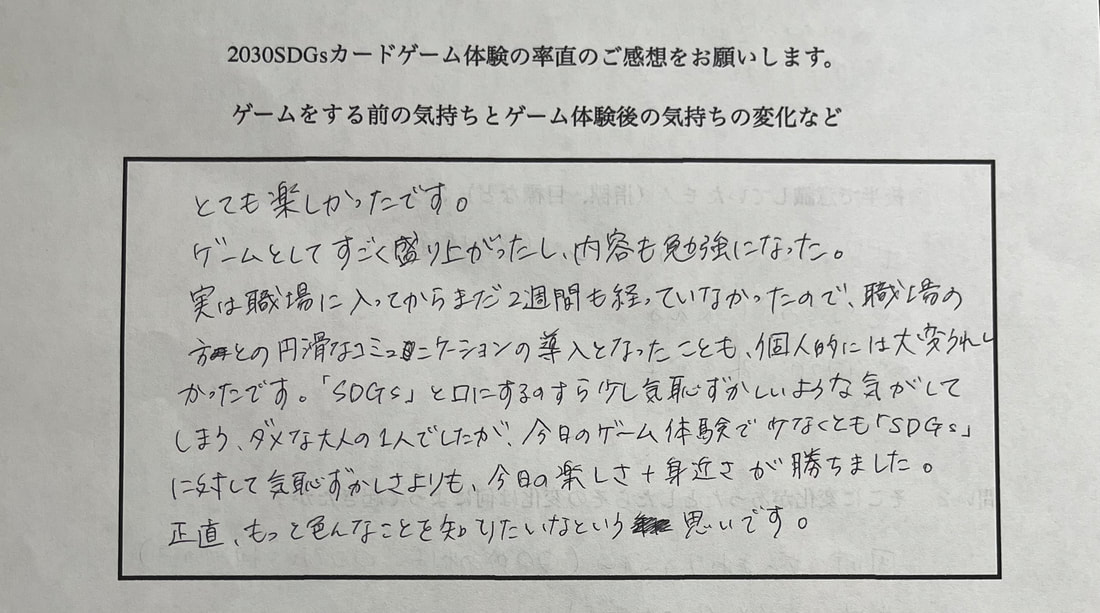 2030SDGsカードゲーム体験の率直のご感想をお願いします。
ゲームをする前の気持ちとゲーム体験後の気持ちの変化など
とても楽しかったです。
ゲームとしてすごく盛り上がったし、内容も勉強になった。
実は職場に入ってからまだ2週間も経っていなかったので、職場の
方々との円滑なコミュニケーションの導入となったことも、個人的には大変うれし
かったです。「SDGs」と口にするのすら少し気恥ずかしいような気がして
しまう、ダメな大人の1人でしたが、今日のゲーム体験で少なくとも「SDGs」
に対して気恥ずかしさよりも、今日の楽しさ+身近さが勝ちました。
正直、もっと色んなことを知りたいなという思いです。